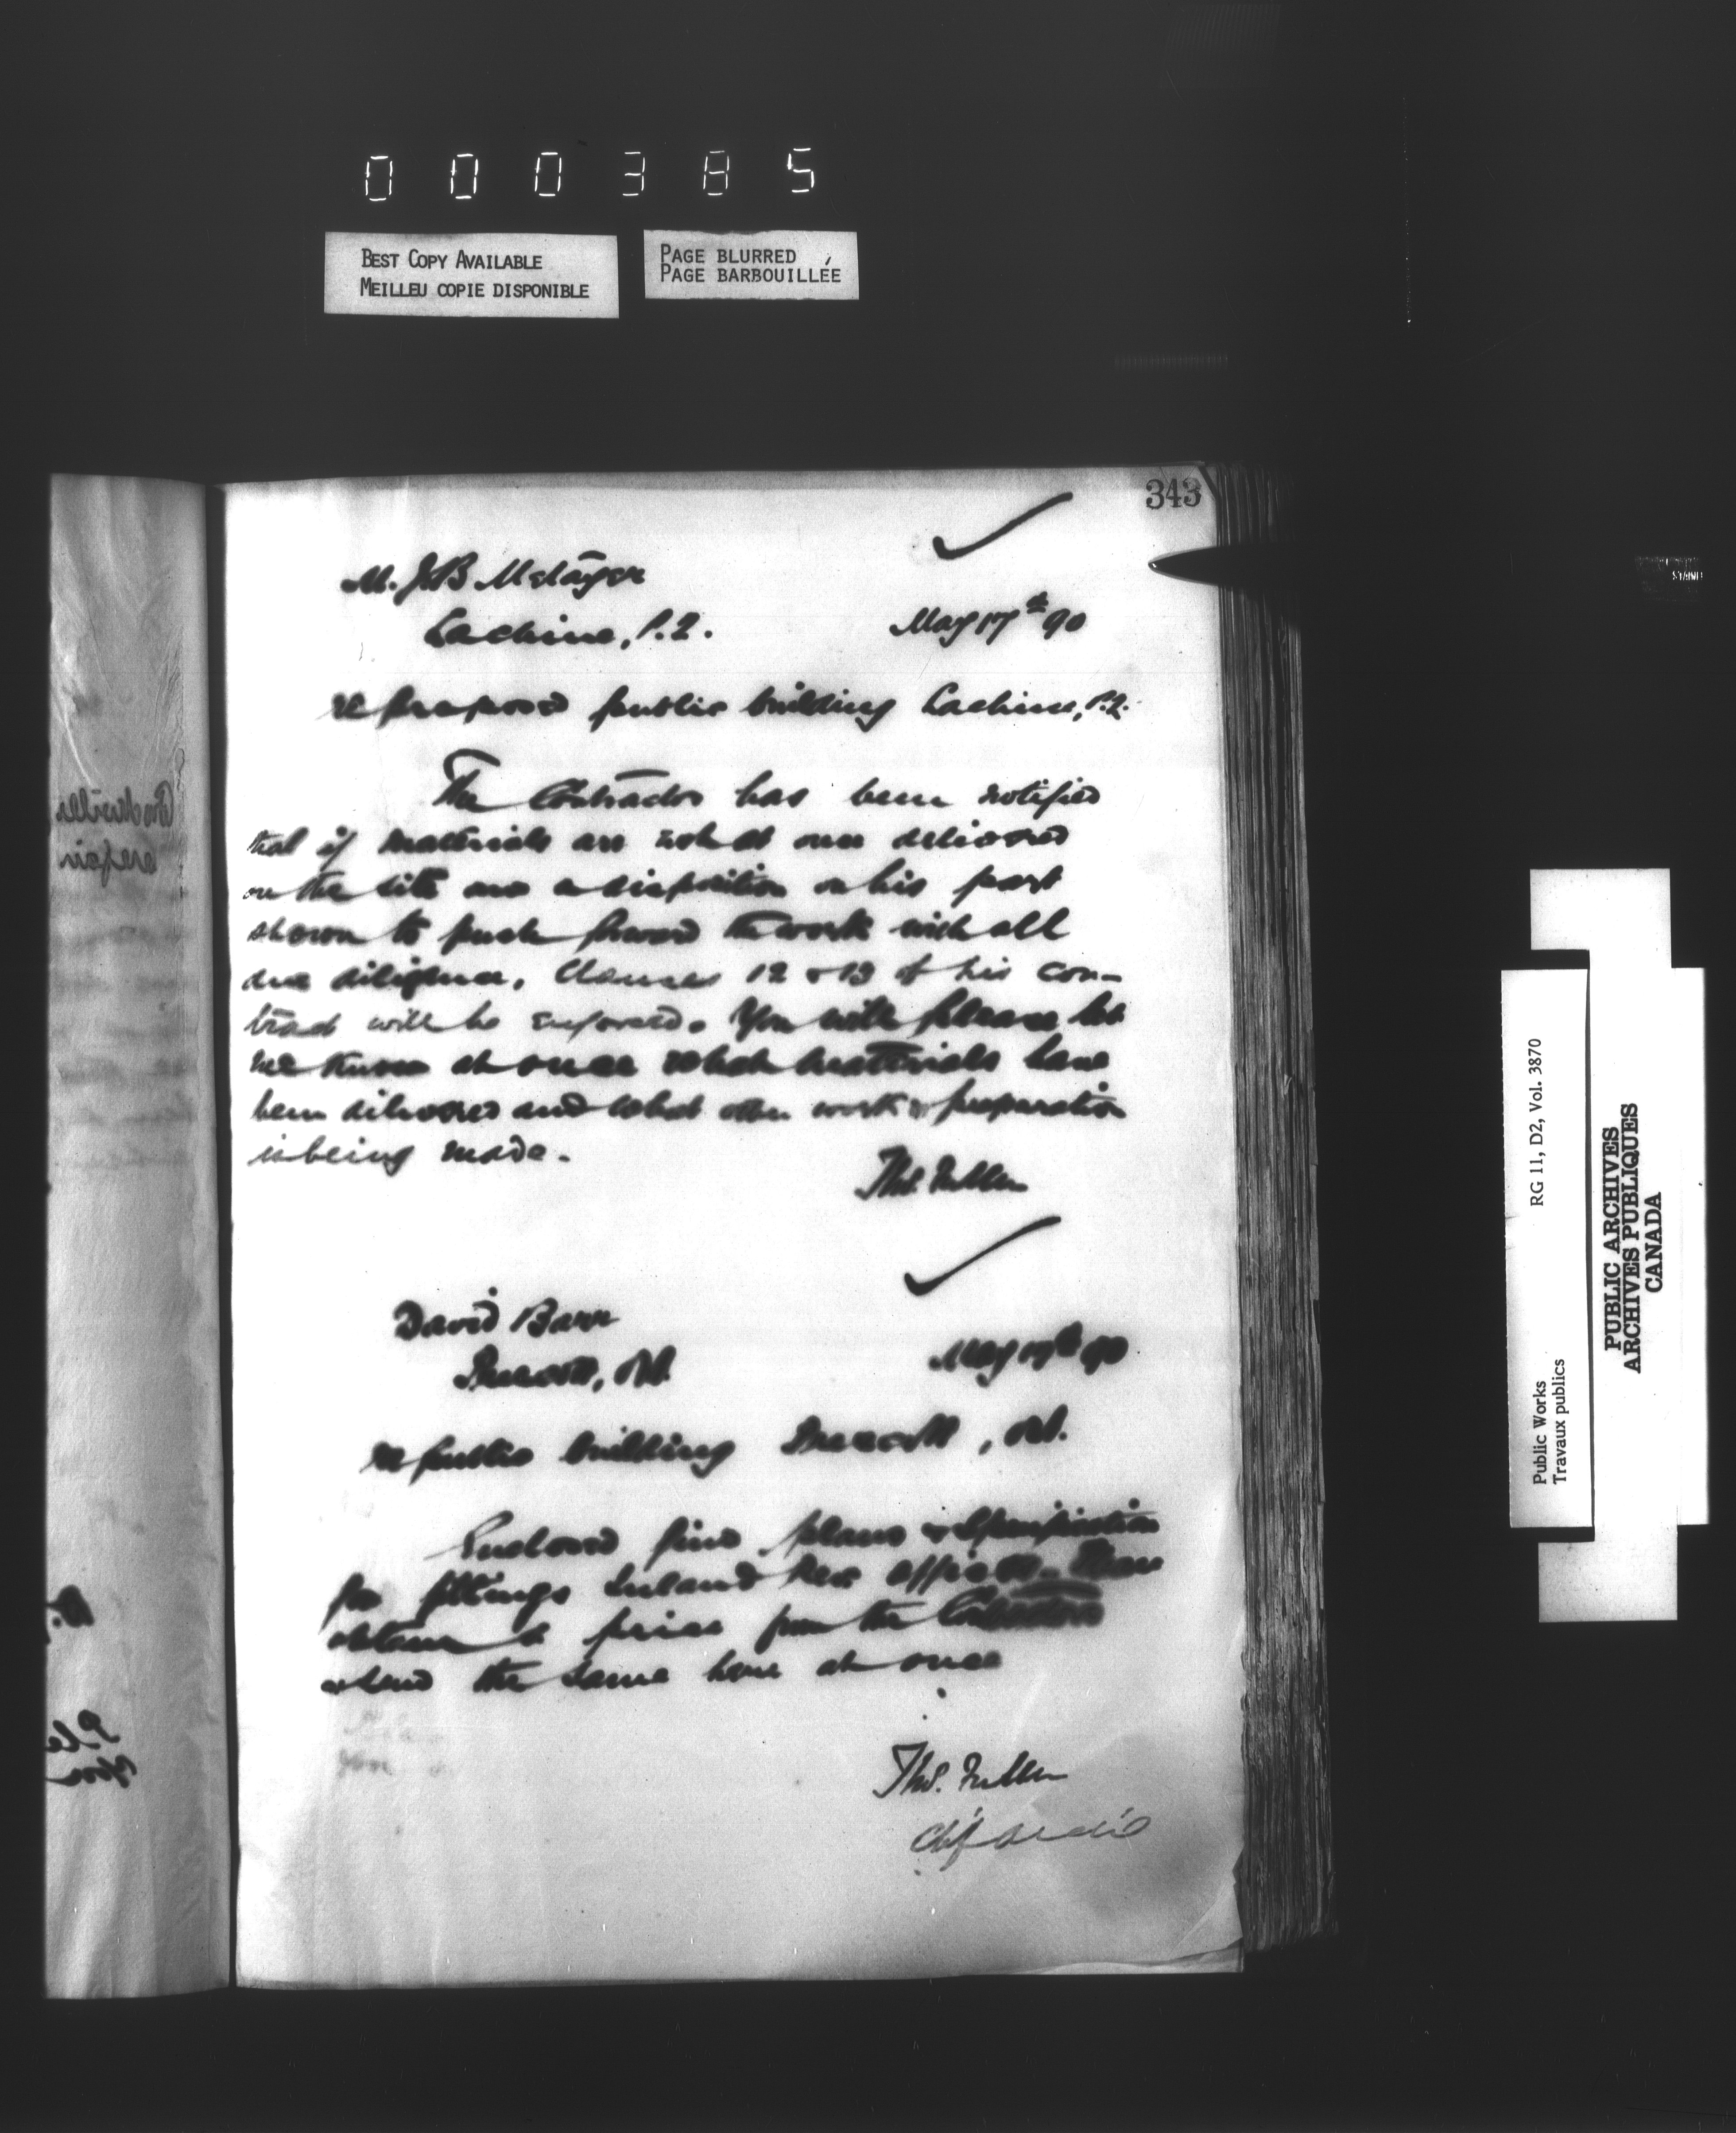 000385
BEST COPY AVAILABLE
MEILLEU COPIE DISPONIBLE
PAGE BLURRED
PAGE BARBOUILLÉE
343
M. J.B Metayer
Lachine, P.Q.
May 17th 90
re proposed public building Lachine, P.Q.
The Contractor has been notified
that if materials are not at once delivered
on the site and a disposition on his part
shown to push forward the work with all
due diligence, Clauses 12 & 13 of his con-
tract will be enforced. You will please let
me know at once what materials have
been delivered and what other work or preparation
is being made.
Thos. Fuller
David Barr
Prescott, Ont.
May 17th 90
re public building Prescott, Ont.
Enclosed find plans & specification
for fittings Inland Rev offices. Please
obtain a price from the Contractor
& send the same here at once
Thos. Fuller
Chf Archt
RG 11, D2, Vol. 3870
Public Works
Travaux publics
PUBLIC ARCHIVES
ARCHIVES PUBLIQUES
CANADA